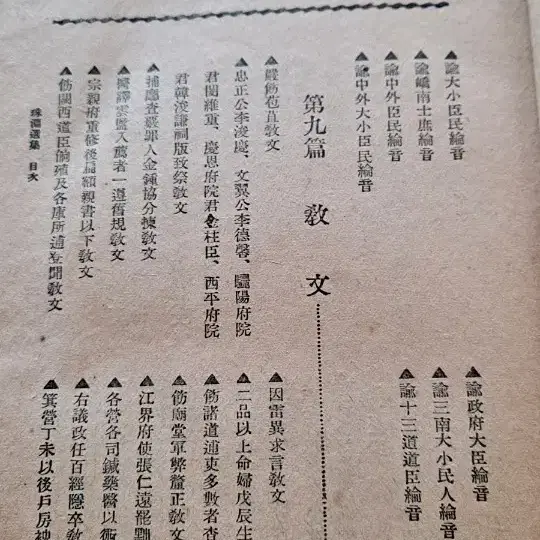 ▲諭大小臣民綸音
▲諭嶠南士庶綸音
▲諭中外臣民綸音
▲諭中外大小臣民綸音
▲諭政府大臣綸音
▲諭三南大小民人綸音
▲諭十三道道臣綸音
第九篇 敎文
▲嚴飭苞苴敎文
▲忠正公李浚慶、文翼公李德馨、驪陽府院
君閔維重、慶恩府院君金柱臣、西平府院
君韓浚謙祠版致祭敎文
▲捕廳査覈罪人金鍾協分揀敎文
▲譯雲監入萬者一遵舊規敎文
▲宗親府重修後扁額親書以下敎文
▲飭關西道臣殖及各庫所逋登聞敎文
▲因雷異求言敎文
▲二品以上命婦戊辰生
▲飭諸道逋吏多數者査
▲飭廟堂軍弊釐正敎文
▲江界府使張仁遠罷黜
▲各營各司鍼藥醫以
▲右議政任百經隱卒敎
▲箕營丁未以後戶房裨
珠淵選集 目次